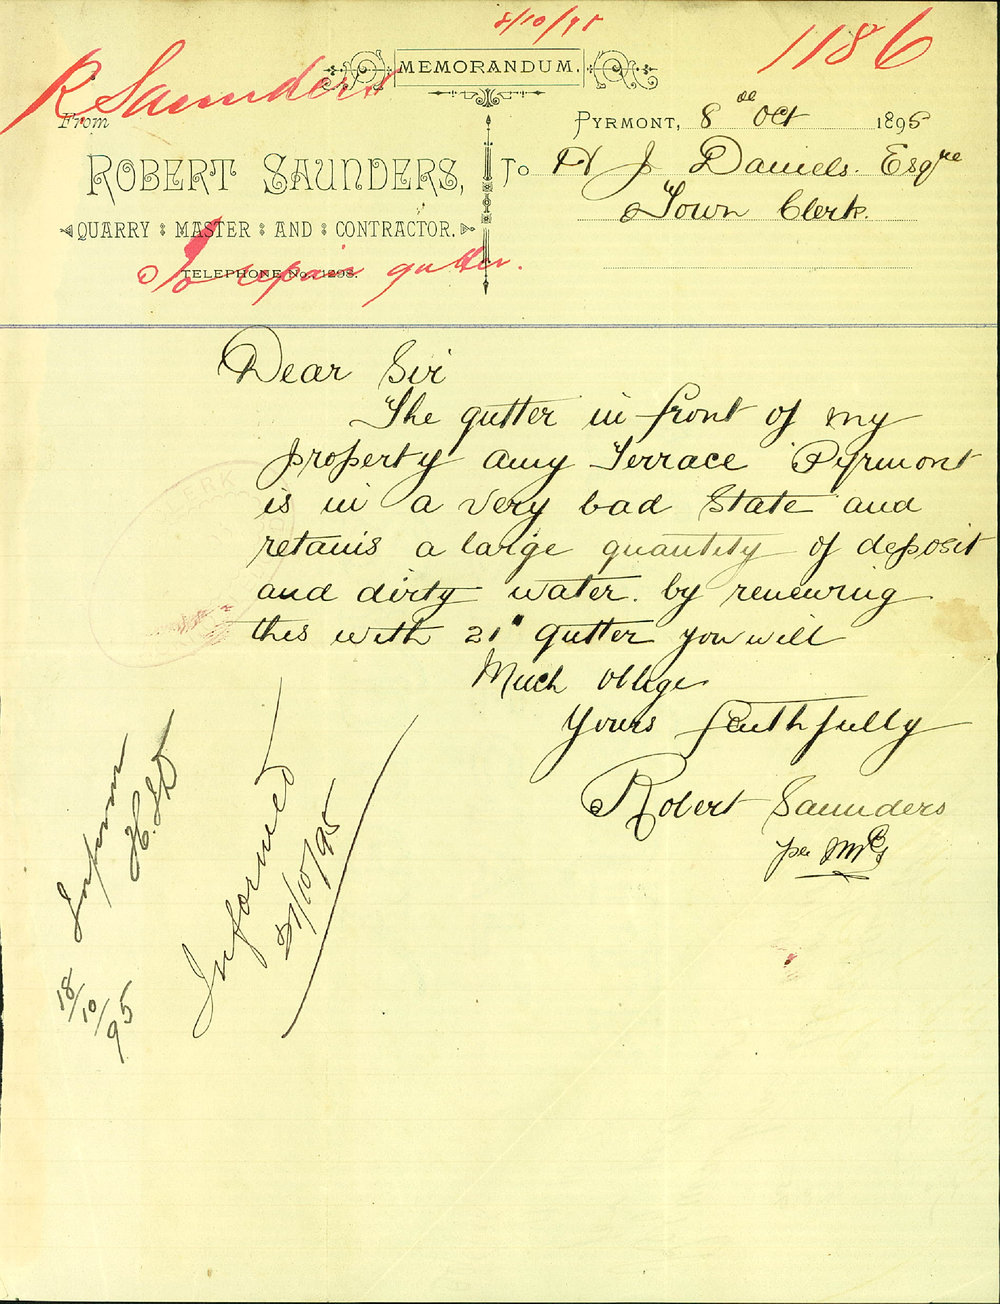 8/10/95
1186
R Saunders
MEMORANDUM.
From
PYRMONT, 8th Oct 1895
ROBERT SAUNDERS,
To H J Daniels. Esqre
Town Clerk.
QUARRY MASTER AND CONTRACTOR.
TELEPHONE No. 1298.
To repair gutter.
Dear Sir
The gutter in front of my
property Amy Terrace Pyrmont
is in a very bad State and
retains a large quantity of deposit
and dirty water. by renewing
this with 21" gutter you will
Much oblige
Yours faithfully
Robert Saunders
per
Inform
18/10/95
Informed
21/10/95